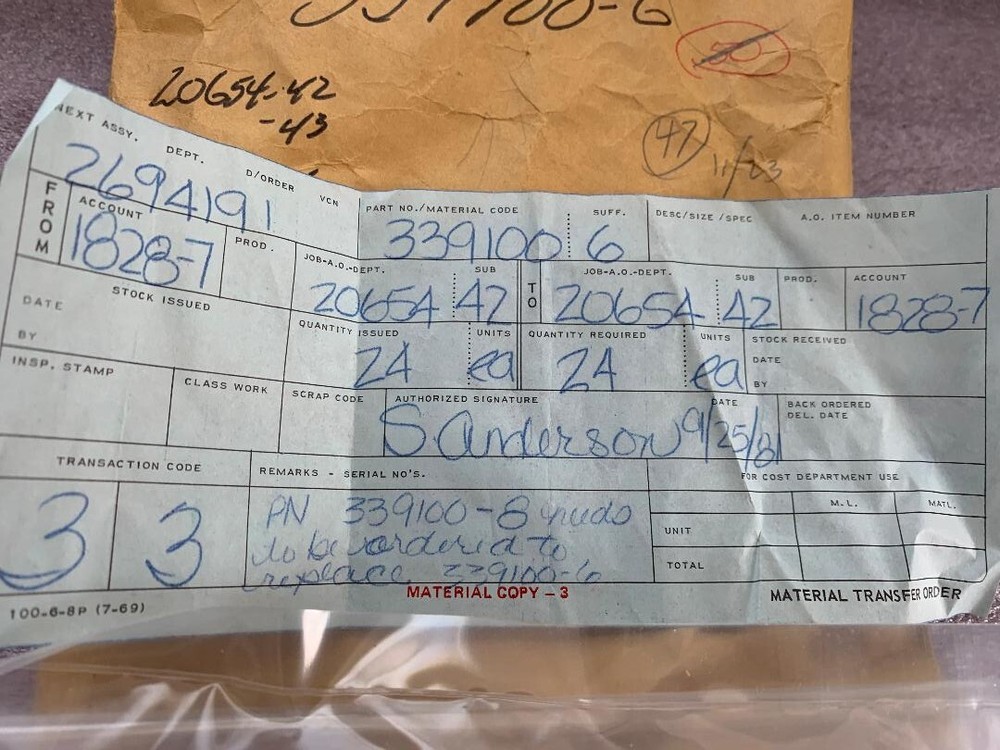 339100-6
20654-42
-43
50
47
11/83
NEXT ASSY. DEPT. D/ORDER VCN
2694191
PART NO./MATERIAL CODE SUFF. DESC/SIZE/SPEC A.O. ITEM NUMBER
339100 6
FROM ACCOUNT PROD. JOB-A.O.-DEPT. SUB TO JOB-A.O.-DEPT. SUB PROD. ACCOUNT
1828-7 20654 42 20654 42 1828-7
STOCK ISSUED QUANTITY ISSUED UNITS QUANTITY REQUIRED UNITS STOCK RECEIVED
DATE 24 ea 24 ea DATE
BY BY
INSP. STAMP CLASS WORK SCRAP CODE AUTHORIZED SIGNATURE DATE BACK ORDERED
DEL. DATE
S Anderson 9/25/81
TRANSACTION CODE REMARKS - SERIAL NO'S. FOR COST DEPARTMENT USE
M.L. MATL.
3 3 PN 339100-8 needs
to be ordered to
replace 339100-6
UNIT
TOTAL
100-6-8P (7-69) MATERIAL COPY - 3 MATERIAL TRANSFER ORDER